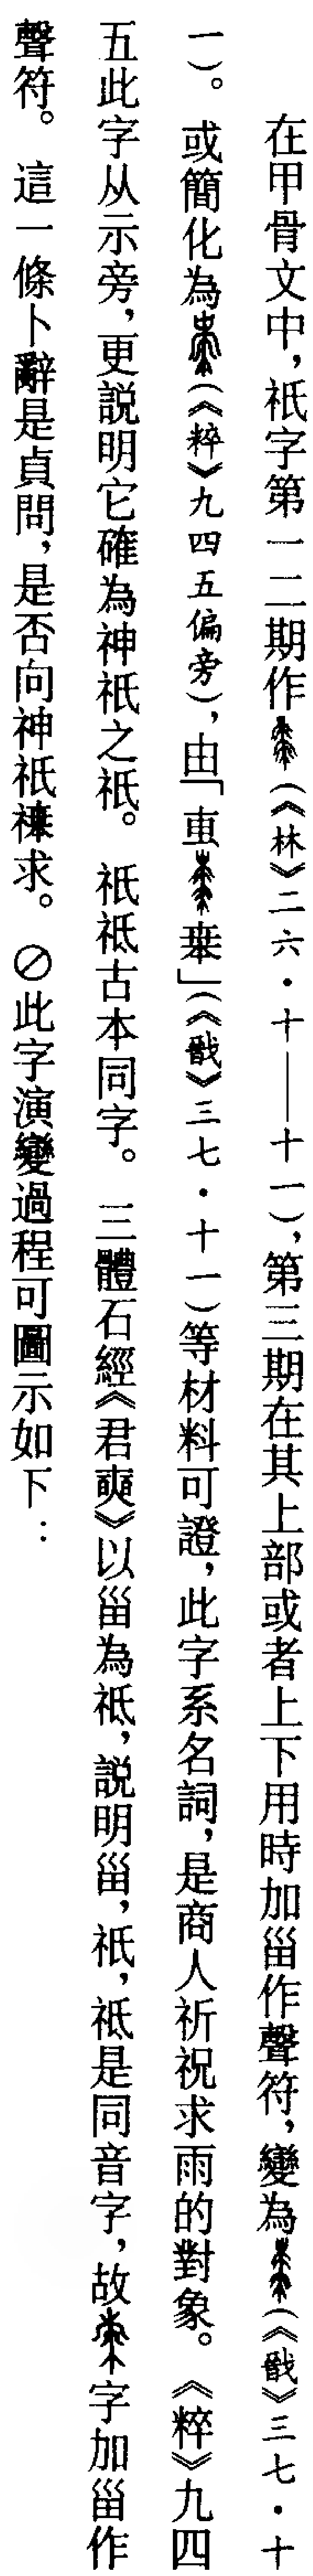 在甲骨文中，祇字第一二期作（《林》二六·十——十一），第三期在其上部或者上下用時加甾作聲符，變為（《戩》三七·十
一）。或簡化為（《粹》九四五偏旁），由「叀桒」（《戩》三七·十一）等材料可證，此字系名詞，是商人祈祝求雨的對象。《粹》九四
五此字从示旁，更説明它確為神祇之祇。祇祗古本同字。三體石經《君奭》以甾為祗，説明甾，祇，祗是同音字，故字加甾作
聲符。這一條卜辭是貞問，是否向神祇求。⊘此字演變過程可圖示如下：